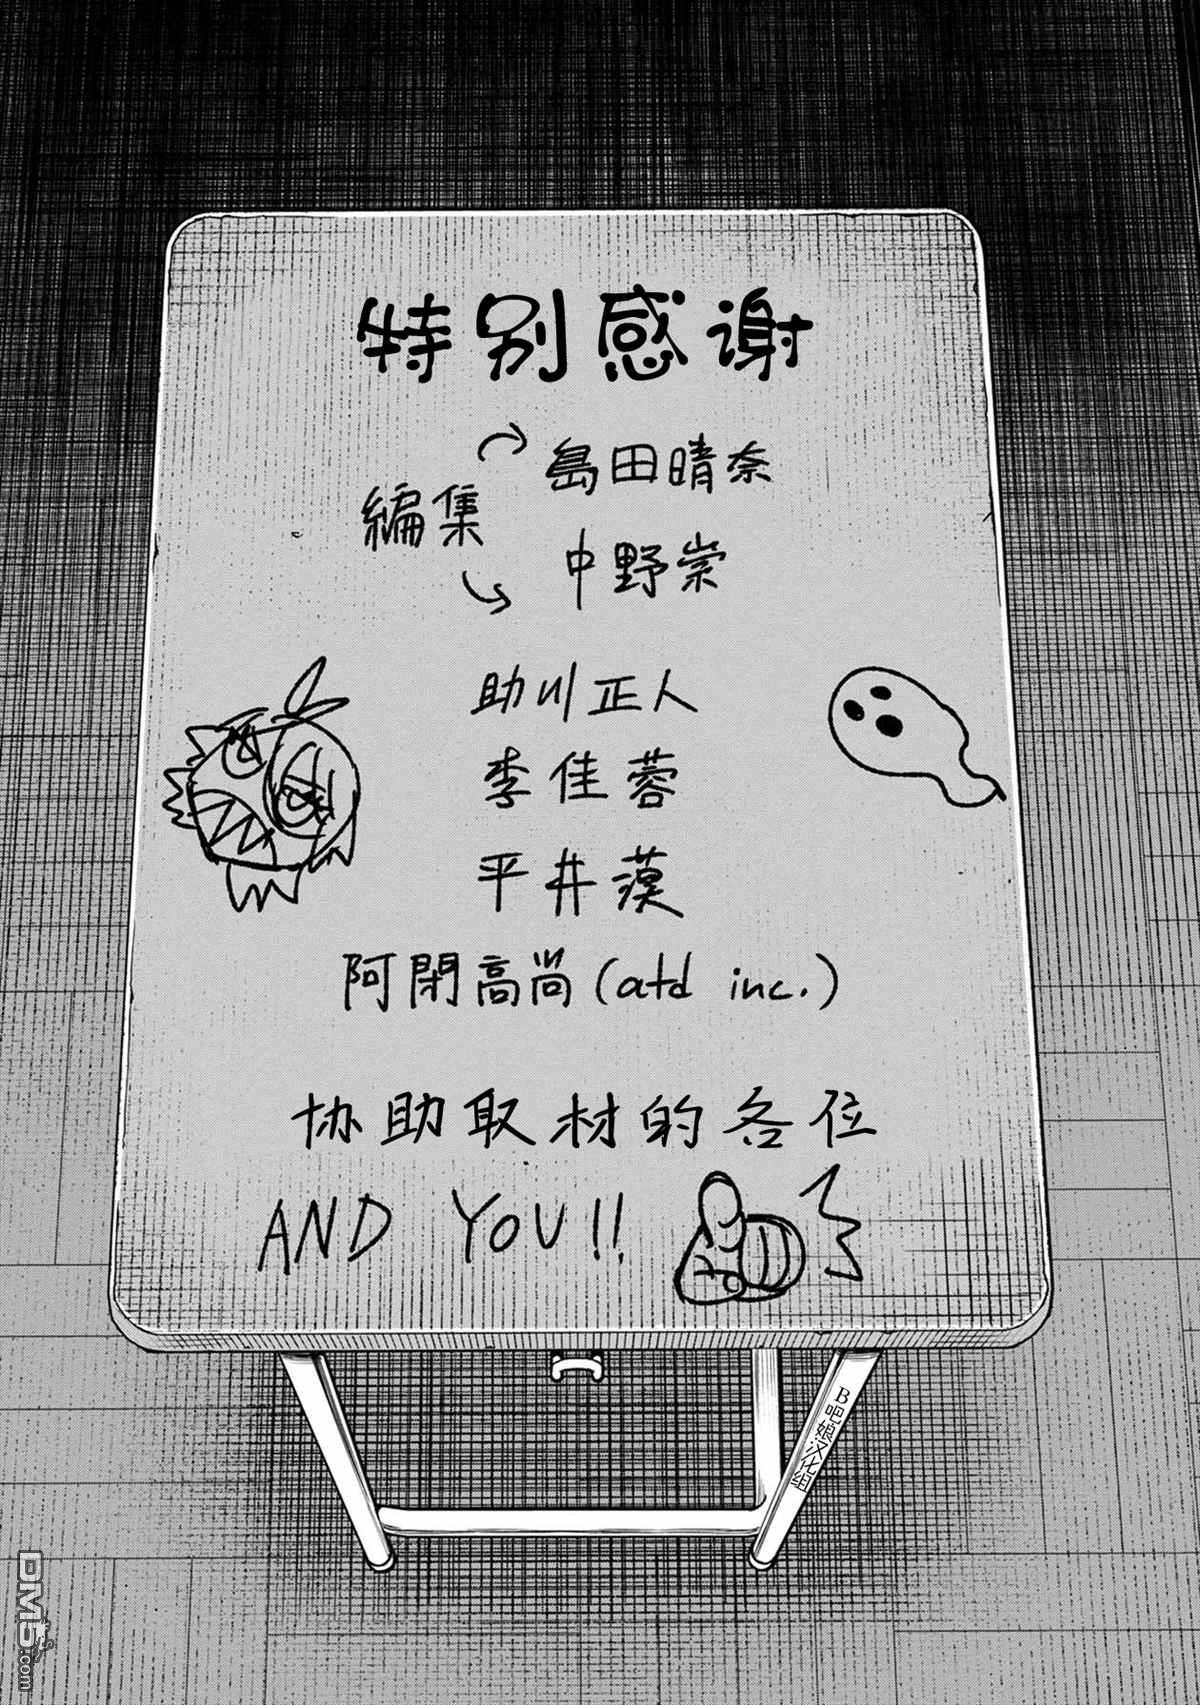 特别感谢
編集
島田晴奈
中野崇
助川正人
李佳蓉
平井蓂
阿閉高尚(atd inc.)
协助取材的各位
AND YOU!!
B吧娘汉化组
DM5.com